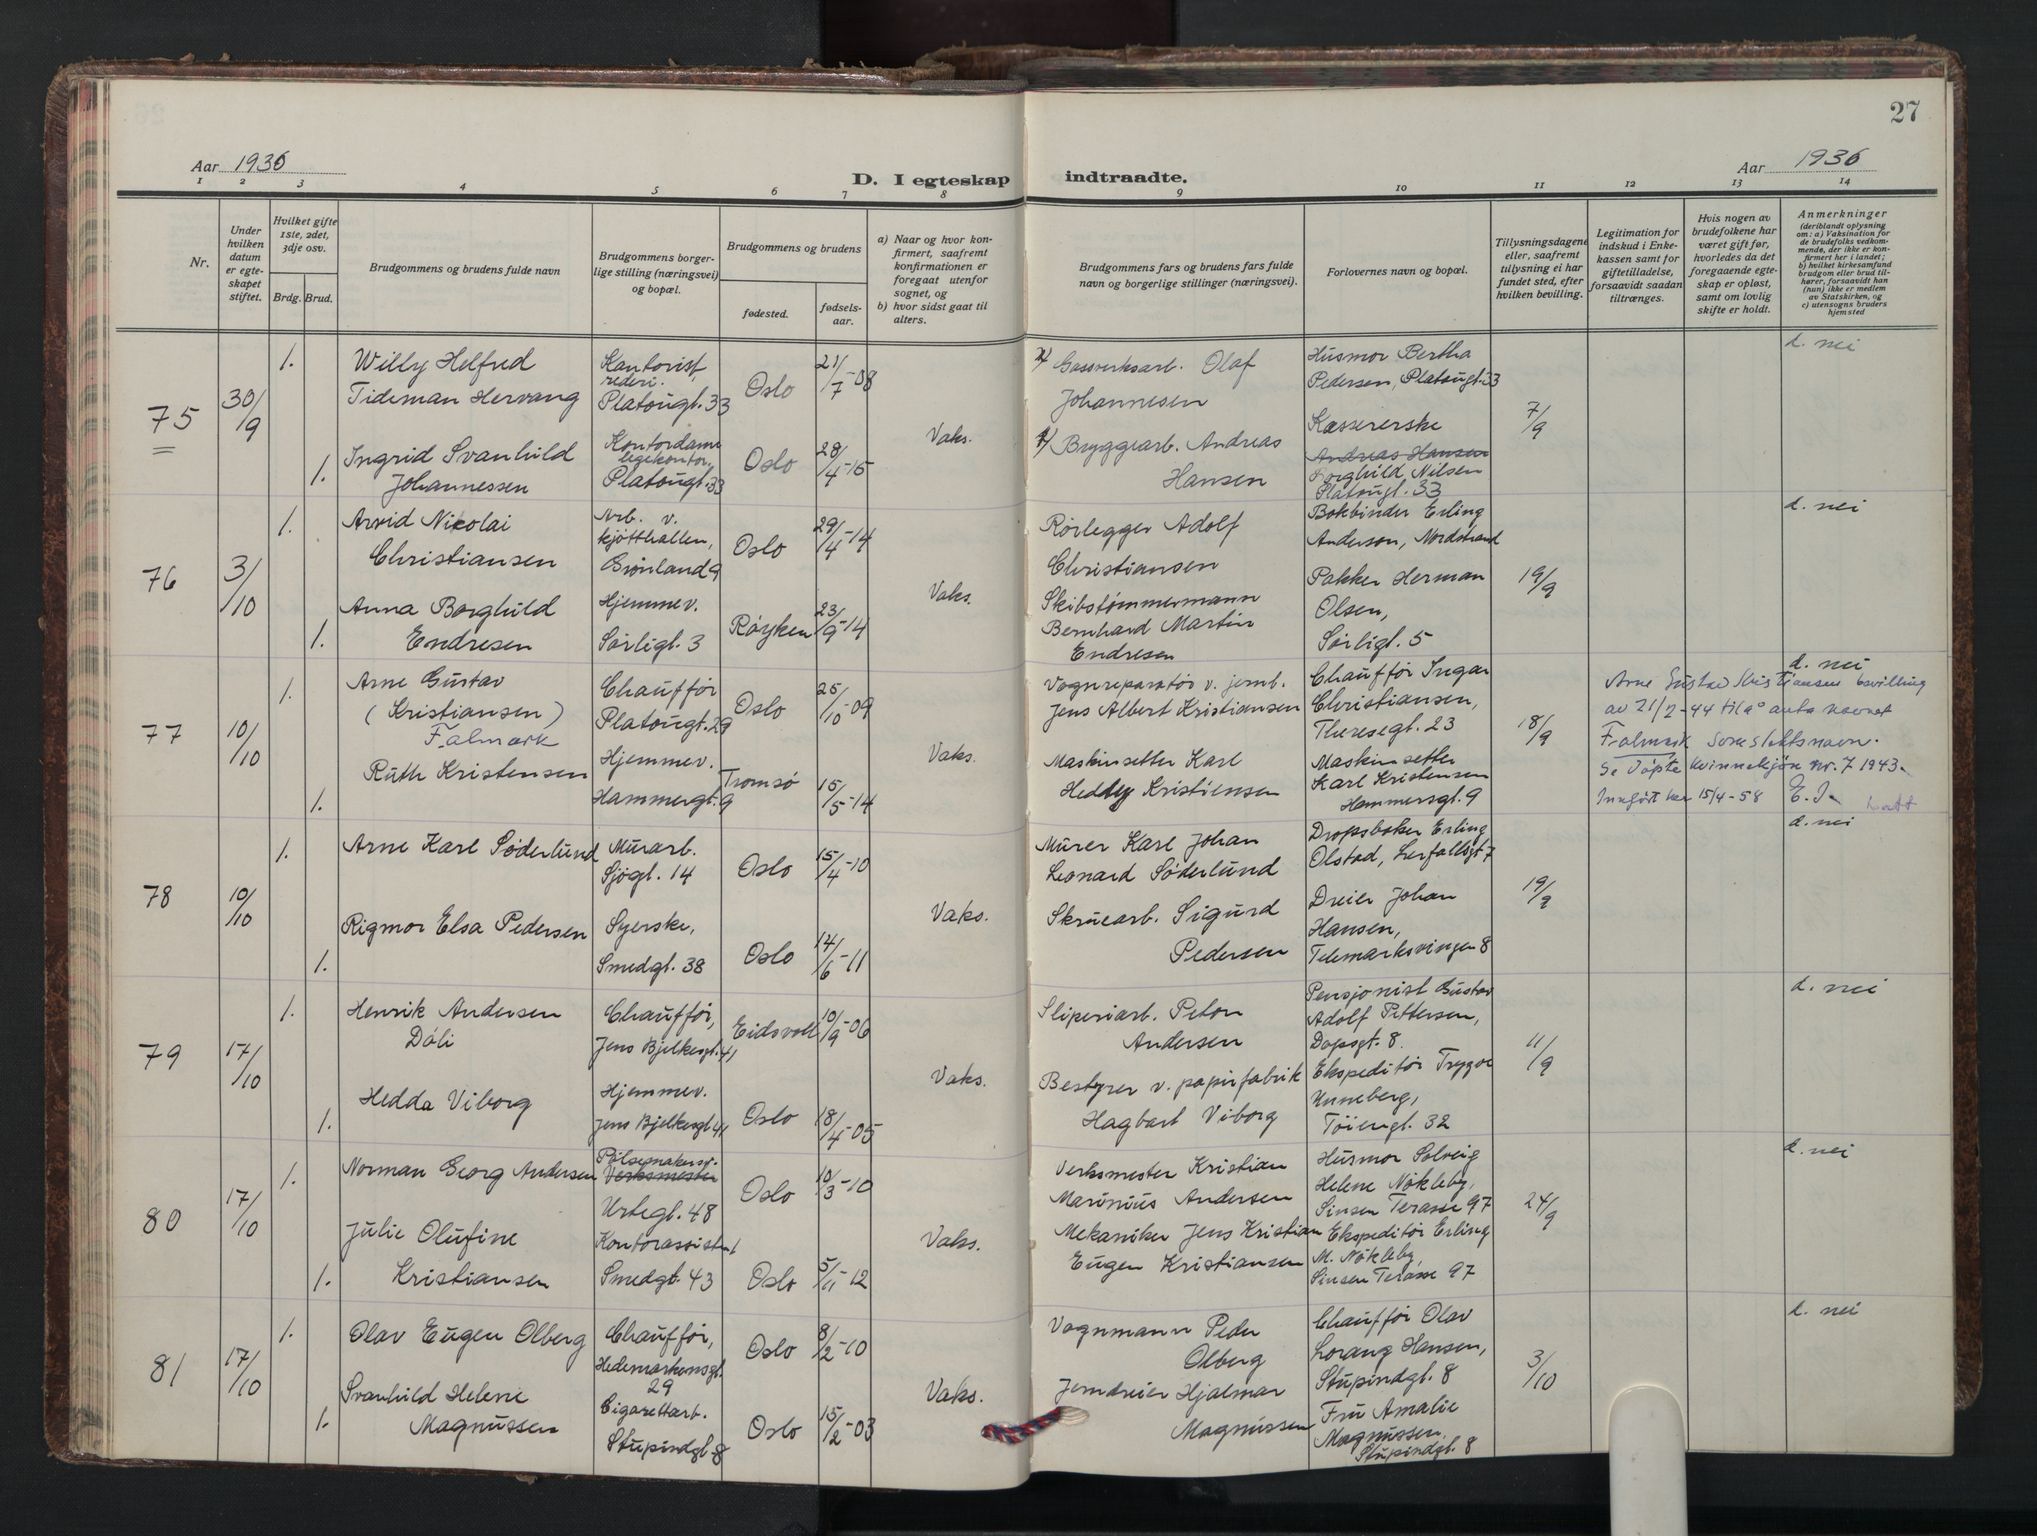 27
Aar 1936
D. I egteskap indtraadte.
Aar 1936
1 2 3 4 5 6 7 8 9 10 11 12 13 14
Nr.
Under
hvilken
datum
er egte-
skapet
stiftet.
Hvilket gifte
1ste, 2det,
3dje osv.
Brdg. Brud.
Brudgommens og brudens fulde navn
Brudgommens borger-
lige stilling (næringsvei)
og bopæl.
Brudgommens og brudens
fødested.
fødsels-
aar.
a) Naar og hvor kon-
firmert, saafremt
konfirmationen er
foregaat utenfor
sognet, og
b) hvor sidst gaat til
alters.
Brudgommens fars og brudens fars fulde
navn og borgerlige stillinger (næringsvei).
Forlovernes navn og bopæl.
Tillysningsdagene
eller, saafremt
tillysning ei har
fundet sted, efter
hvilken bevilling.
Legitimation for
indskud i Enke-
kassen samt for
giftetilladelse,
forsaavidt saadan
tiltrænges.
Hvis nogen av
brudefolkene har
været gift før,
hvorledes da det
foregaaende egte-
skap er opløst,
samt om lovlig
skifte er holdt.
Anmerkninger
(deriblandt oplysning
om: a) Vaksination for
de brudefolks vedkom-
mende, der ikke er kon-
firmert her i landet;
b) hvilket kirkesamfund
brudgom eller brud til-
hører, forsaavidt han
(hun) ikke er medlem
av Statskirken, og
c) utensogns bruders
hjemsted
75
30/9
1.
Willy Helfred
Tideman Hervang
Kontorist,
rederi.
Platougt. 33
Oslo
21/7-08
1.
Ingrid Svanhild
Johannessen
Kontordame
legekontor,
Platougt. 33
Oslo
28/4-15
Vaks.
Gassverksarb. Olaf
Johannesen
Bryggearb. Andreas
Hansen
Husmor Bertha
Pedersen, Platougt. 33
Kassererske
Andreas Hansen
Borghild Nilsen
Platougt. 33
7/9
d. nei
76
3/10
1.
Arvid Nikolai
Christiansen
Arb. v.
kjøtthallen,
Grønland 9
Oslo
29/4-14
1.
Anna Borghild
Endresen
Hjemmev.
Sørligt. 3
Røyken
23/9-14
Vaks.
Rørlegger Adolf
Christiansen
Skibstømmermann
Bernhard Martin
Endresen
Bokbinder Erling
Anderson, Nordstrand
Pakker Herman
Olsen,
Sørligt. 5
19/9
d. nei
77
10/10
1.
Arne Gustav
(Kristiansen)
Falmark
Chauffør
Platougt. 29
Oslo
25/10-09
1.
Ruth Kristensen
Hjemmev.
Hammergt. 9
Tromsø
15/5-14
Vaks.
Vognreparatør v. jernb.
Jens Albert Kristiansen
Maskinsetter Karl
Hedley Kristensen
Chauffør Ingar
Christiansen,
Theresegt. 23
Maskinsetter
Karl Kristensen
Hammersgt. 9
18/9
d. nei
Arne Gustav Kristiansen bevilling
av 21/2-44 til å anta navnet
Falmark som slektsnavn.
Se døpte kvinnekjøn nr. 7 1943.
Innført her 15/4-58 E. J.
78
10/10
1.
Arne Karl Søderlund
Murarb.
Sjøgt. 14
Oslo
15/4-10
1.
Rigmor Elsa Pedersen
Syerske,
Smedgt. 38
Oslo
14/6-11
Vaks.
Murer Karl Johan
Leonard Søderlund
Skruearb. Sigurd
Pedersen
Dropskoker Erling
Olstad, Lerfallsgt 7
Dreier Johan
Hansen,
Telemarksvingen 8
19/9
d. nei
79
17/10
1.
Henrik Andersen
Dåli
Chauffør,
Jens Bjelkesgt. 41
Eidsvoll
10/9-06
1.
Hedda Viborg
Hjemmev.
Jens Bjelkesgt 41
Oslo
18/4-05
Vaks.
Sliperiarb. Peton
Andersen
Bestyrer v. papirfabrik
Hagbart Viborg
Pensjonist Gustav
Adolf Pettersen,
Dopsgt. 8.
Ekspeditør Trygve
Unneberg,
Tøiengt. 32
11/9
d. nei
80
17/10
1.
Norman Georg Andersen
Pølsemakersv.
Verksmester
Urtegt. 48
Oslo
10/3-10
1.
Julie Olufine
Kristiansen
Kontorassistent
Smedgt. 43
Oslo
5/11-12
Vaks.
Verksmester Kristian
Marinius Andersen
Mekaniker Jens Kristian
Eugen Kristiansen
Husmor Solveig
Helene Nøkleby,
Sinsen Terasse 97
Ekspeditør Erling
M. Nøkleby
Sinsen Terasse 97
24/9
d. nei
81
17/10
1.
Olav Eugen Olberg
Chauffør,
Hedemarkensgt.
29
Oslo
8/2-10
1.
Svanhild Helene
Magnussen
Cigarettarb.
Stupindgt. 8
Oslo
15/2-03
Vaks.
Vognmann Peder
Olberg
Jerndreier Hjalmar
Magnussen
Chauffør Olav
Lorang Hansen,
Stupindgt. 8
Fru Amalie
Magnussen,
Stupindgt. 8
3/10
d. nei